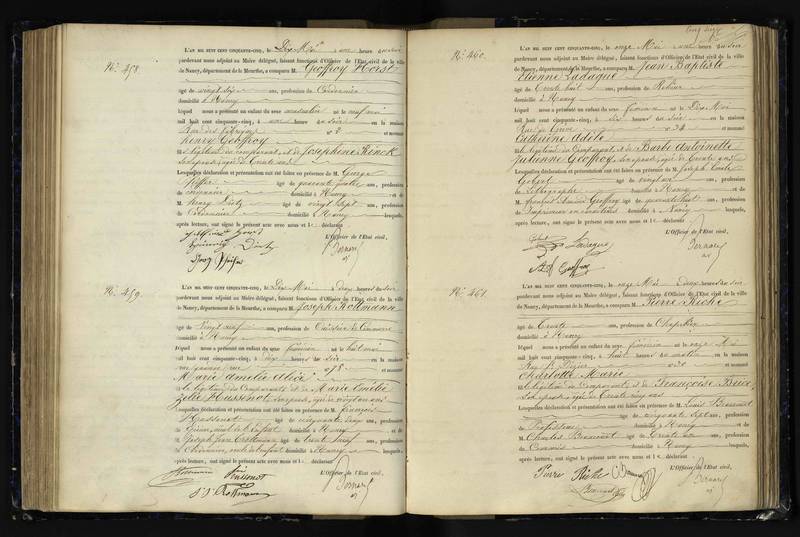 N°. 458
L'AN MIL HUIT CENT CINQUANTE-CINQ, le Dix Mai à une heure du soir
pardevant nous adjoint au Maire délégué, faisant fonctions d'Officier de l'Etat civil de la ville
de Nancy, département de la Meurthe, a comparu M. Geoffroy Horst
âgé de vingt six ans, profession de Cordonnier
domicilié à Nancy
lequel nous a présenté un enfant du sexe masculin né le neuf mai
mil huit cent cinquante-cinq, à une heure du soir en la maison
Rue des n° 2 et nommé
henry Geoffroy
fils légitime du comparant et de Josephine Kinck
son épouse, âgée de trente ans
Lesquelles déclaration et présentation ont été faites en présence de M. George
Pfiffer âgé de quarante quatre ans, profession
de domicilié à Nancy et de
M. henry Dietz âgé de vingt sept ans, profession
de Cordonnier domicilié à Nancy lesquels,
après lecture, ont signé le présent acte avec nous et le déclarant
L'Officier de l'Etat civil,
Bernard
N°. 459.
L'AN MIL HUIT CENT CINQUANTE-CINQ, le Dix Mai à deux heures du soir
pardevant nous adjoint au Maire délégué, faisant fonctions d'Officier de l'Etat civil de la ville
de Nancy, département de la Meurthe, a comparu M. Joseph Rottmann
âgé de vingt neuf ans, profession de Caissier de Commerce
domicilié à Nancy
lequel nous a présenté un enfant du sexe féminin né le huit mai
mil huit cent cinquante-cinq, à dix heures du soir en la maison
n° 8 et nommé
Marie Amelie Alice
fille légitime du Comparant et de Marie Emélie
Zélie Hussenot son épouse, âgée de vingt un ans
Lesquelles déclaration et présentation ont été faites en présence de M. françois
Hussenot âgé de cinquante deux ans, profession
de domicilié à Nancy et de
M. Joseph Jean Rottmann âgé de trente neuf ans, profession
de domicilié à Nancy lesquels,
après lecture, ont signé le présent acte avec nous et le déclarant
L'Officier de l'Etat civil,
Hussenot
J. J. Rottmann
Bernard
N°. 460.
L'AN MIL HUIT CENT CINQUANTE-CINQ, le onze Mai à une heure du soir
pardevant nous adjoint au Maire délégué, faisant fonctions d'Officier de l'Etat civil de la ville
de Nancy, département de la Meurthe, a comparu M. Jean Baptiste
Etienne Ladague
âgé de trente huit ans, profession de Relieur
domicilié à Nancy
lequel nous a présenté un enfant du sexe féminin né le Dix Mai
mil huit cent cinquante-cinq, à dix heures du soir en la maison
Rue de n° 34 et nommé
Catherine Adèle
fille légitime du Comparant et de Barbe Antoinette
Julienne Geoffroy, son épouse, âgée de trente ans
Lesquelles déclaration et présentation ont été faites en présence de M. Joseph Emile
Gobert âgé de vingt six ans, profession
de Lithographe domicilié à Nancy et de
M. françois Aimé Geoffroy âgé de quarante huit ans, profession
de Imprimeur domicilié à Nancy lesquels,
après lecture, ont signé le présent acte avec nous et le déclarant
L'Officier de l'Etat civil,
Ladague
Bernard
N°. 461.
L'AN MIL HUIT CENT CINQUANTE-CINQ, le onze Mai à deux heures du soir
pardevant nous adjoint au Maire délégué, faisant fonctions d'Officier de l'Etat civil de la ville
de Nancy, département de la Meurthe, a comparu M. Pierre Riche
âgé de trente ans, profession de Chapelier
domicilié à Nancy
lequel nous a présenté un enfant du sexe féminin né le onze Mai
mil huit cent cinquante-cinq, à huit heures du matin en la maison
Rue St Dizier et nommé
Charlotte Marie
fille légitime du Comparant et de Françoise
son épouse, âgée de trente cinq ans
Lesquelles déclaration et présentation ont été faites en présence de M. Louis
âgé de cinquante sept ans, profession
de Professeur domicilié à Nancy et de
M. Charles âgé de trente ans, profession
de domicilié à Nancy lesquels,
après lecture, ont signé le présent acte avec nous et le déclarant
L'Officier de l'Etat civil,
Pierre Riche
Bernard